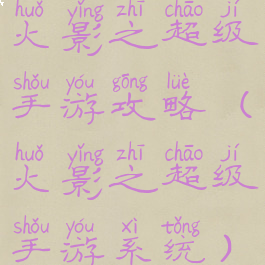 huǒ yǐng zhī chāo jí
火影之超级
shǒu yóu gōng lüè
手游攻略（
huǒ yǐng zhī chāo jí
火影之超级
shǒu yóu xì tǒng
手游系统）